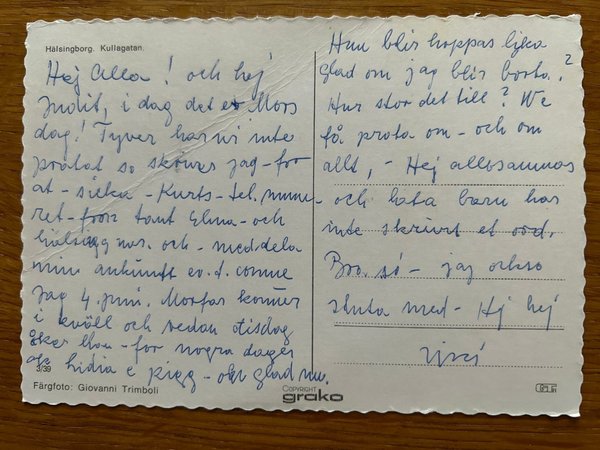 Hälsingborg. Kullagatan.
Hej Alla! och hej
Judit, i dag det er Mors
dag! Tyver har vi inte
pratat so skriver jag - for
at - sicka - Kurts - tel. numme-
ret - from tant Elma - och
hälsigg mor. och - meddela
mim ankunft ev. d. comme
Jag 4. juni. Morfar komer
i kväll och redan otisdag
åker hon - for nogra dager
ok lidia e pigg - och glad nu.
3/39
Färgfoto: Giovanni Trimboli
Hun blir hoppas lika
glad om jag blir borta?
Hur stor det till? We
få prata om - och om
allt, - Hej allesammas
och lata barn har
inte skrivt et ord.
Bra. så - jag ockso
sluta med - Hej hej
COPYRIGHT
grako